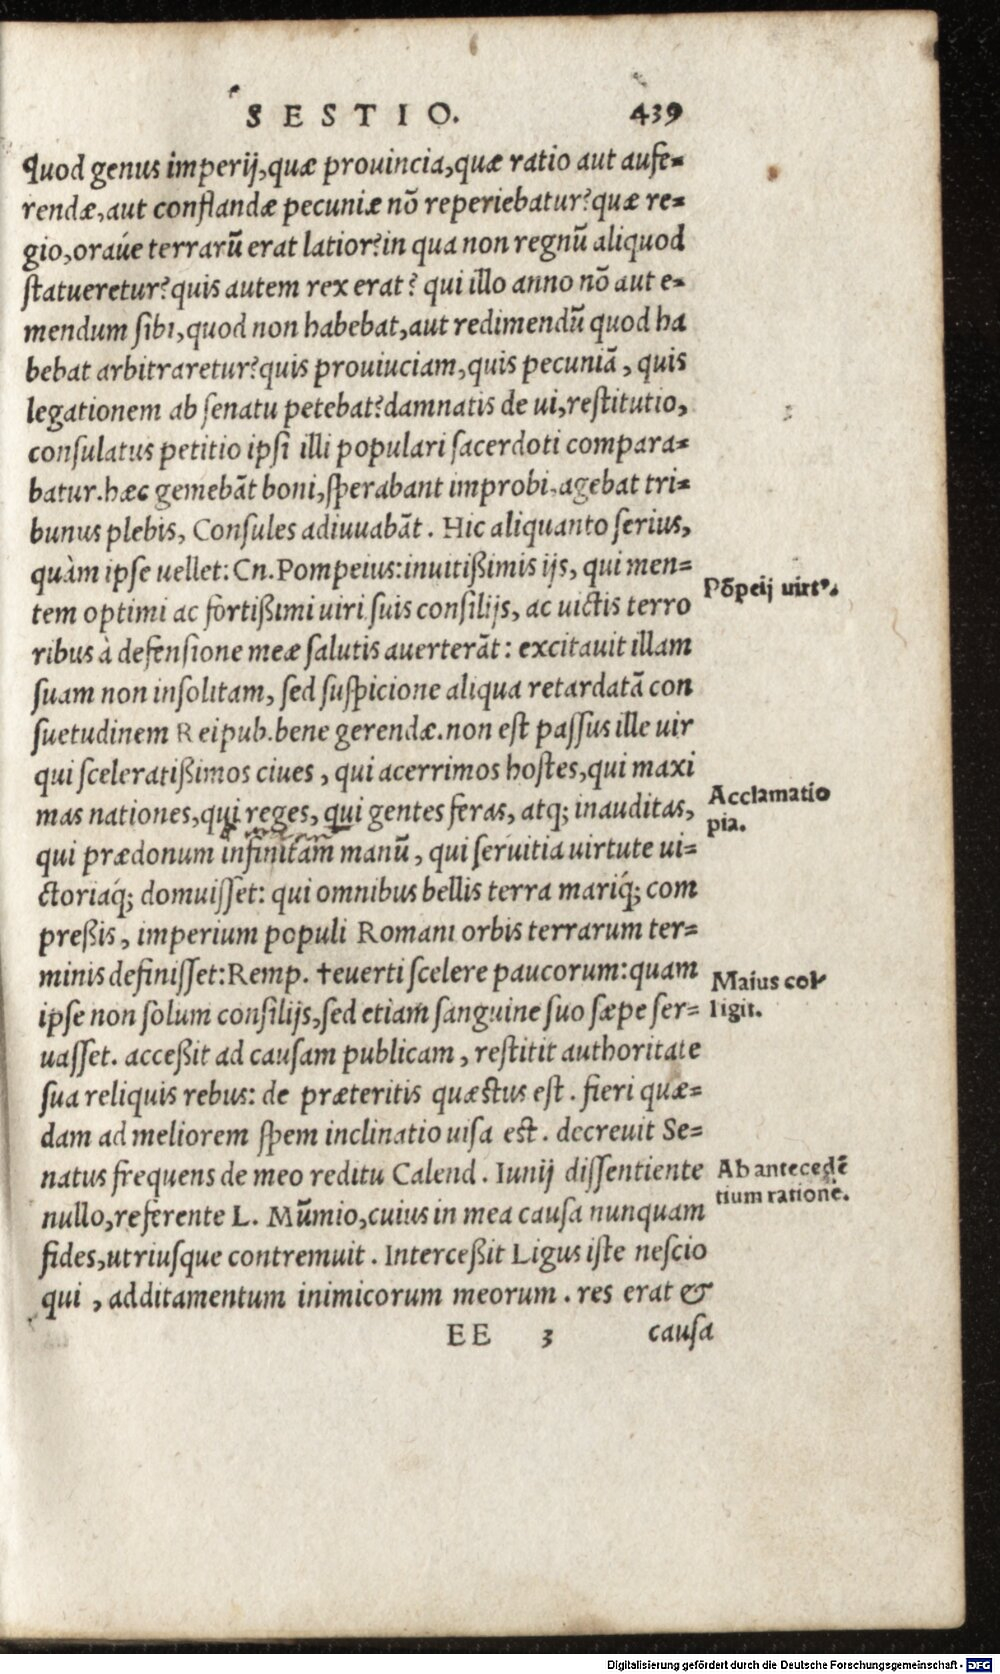 SESTIO. 439
Quod genus imperij,quæ prouincia,quæ ratio aut aufe=
rendæ,aut conflandæ pecuniæ nõ reperiebatur?quæ re=
gio,oraúe terrarũ erat latior?in qua non regnũ aliquod
statueretur?quis autem rex erat? qui illo anno nõ aut e=
mendum sibi,quod non habebat,aut redimendũ quod ha
bebat arbitraretur?quis prouiuciam,quis pecuniã, quis
legationem ab senatu petebat?damnatis de ui,restitutio,
consulatus petitio ipsi illi populari sacerdoti compara=
batur.hæc gemebãt boni,sperabant improbi,agebat tri=
bunus plebis, Consules adiuuabãt. Hic aliquanto serius,
quàm ipse uellet: Cn.Pompeius:inuitißimis ijs, qui men=
Põpeij uirtꝰ.
tem optimi ac fortißimi uiri suis consilijs, ac uictis terro
ribus à defensione meæ salutis auerterãt: excitauit illam
suam non insolitam, sed suspicione aliqua retardatã con
suetudinem Reipub.bene gerendæ.non est passus ille uir
qui sceleratißimos ciues, qui acerrimos hostes,qui maxi
mas nationes,qui reges, qui gentes feras, atq; inauditas,
Acclamatio
pia.
qui prædonum infinitam manũ, qui seruitia uirtute ui=
ctoriaq́; domuisset: qui omnibus bellis terra mariq́; com
preßis, imperium populi Romani orbis terrarum ter=
minis definisset:Remp. †euerti scelere paucorum:quam
Maius col
ligit.
ipse non solum consilijs,sed etiam sanguine suo sæpe ser=
uasset. acceßit ad causam publicam, restitit authoritate
sua reliquis rebus: de præteritis quæstus est. fieri quæ=
dam ad meliorem spem inclinatio uisa est. decreuit Se=
natus frequens de meo reditu Calend. Iunij dissentiente
Ab antecedẽ
tium ratione.
nullo,referente L. Mũmio,cuius in mea causa nunquam
fides,utriusque contremuit. Interceßit Ligus iste nescio
qui, additamentum inimicorum meorum. res erat &
EE 3 causa
Digitalisierung gefördert durch die Deutsche Forschungsgemeinschaft - DFG